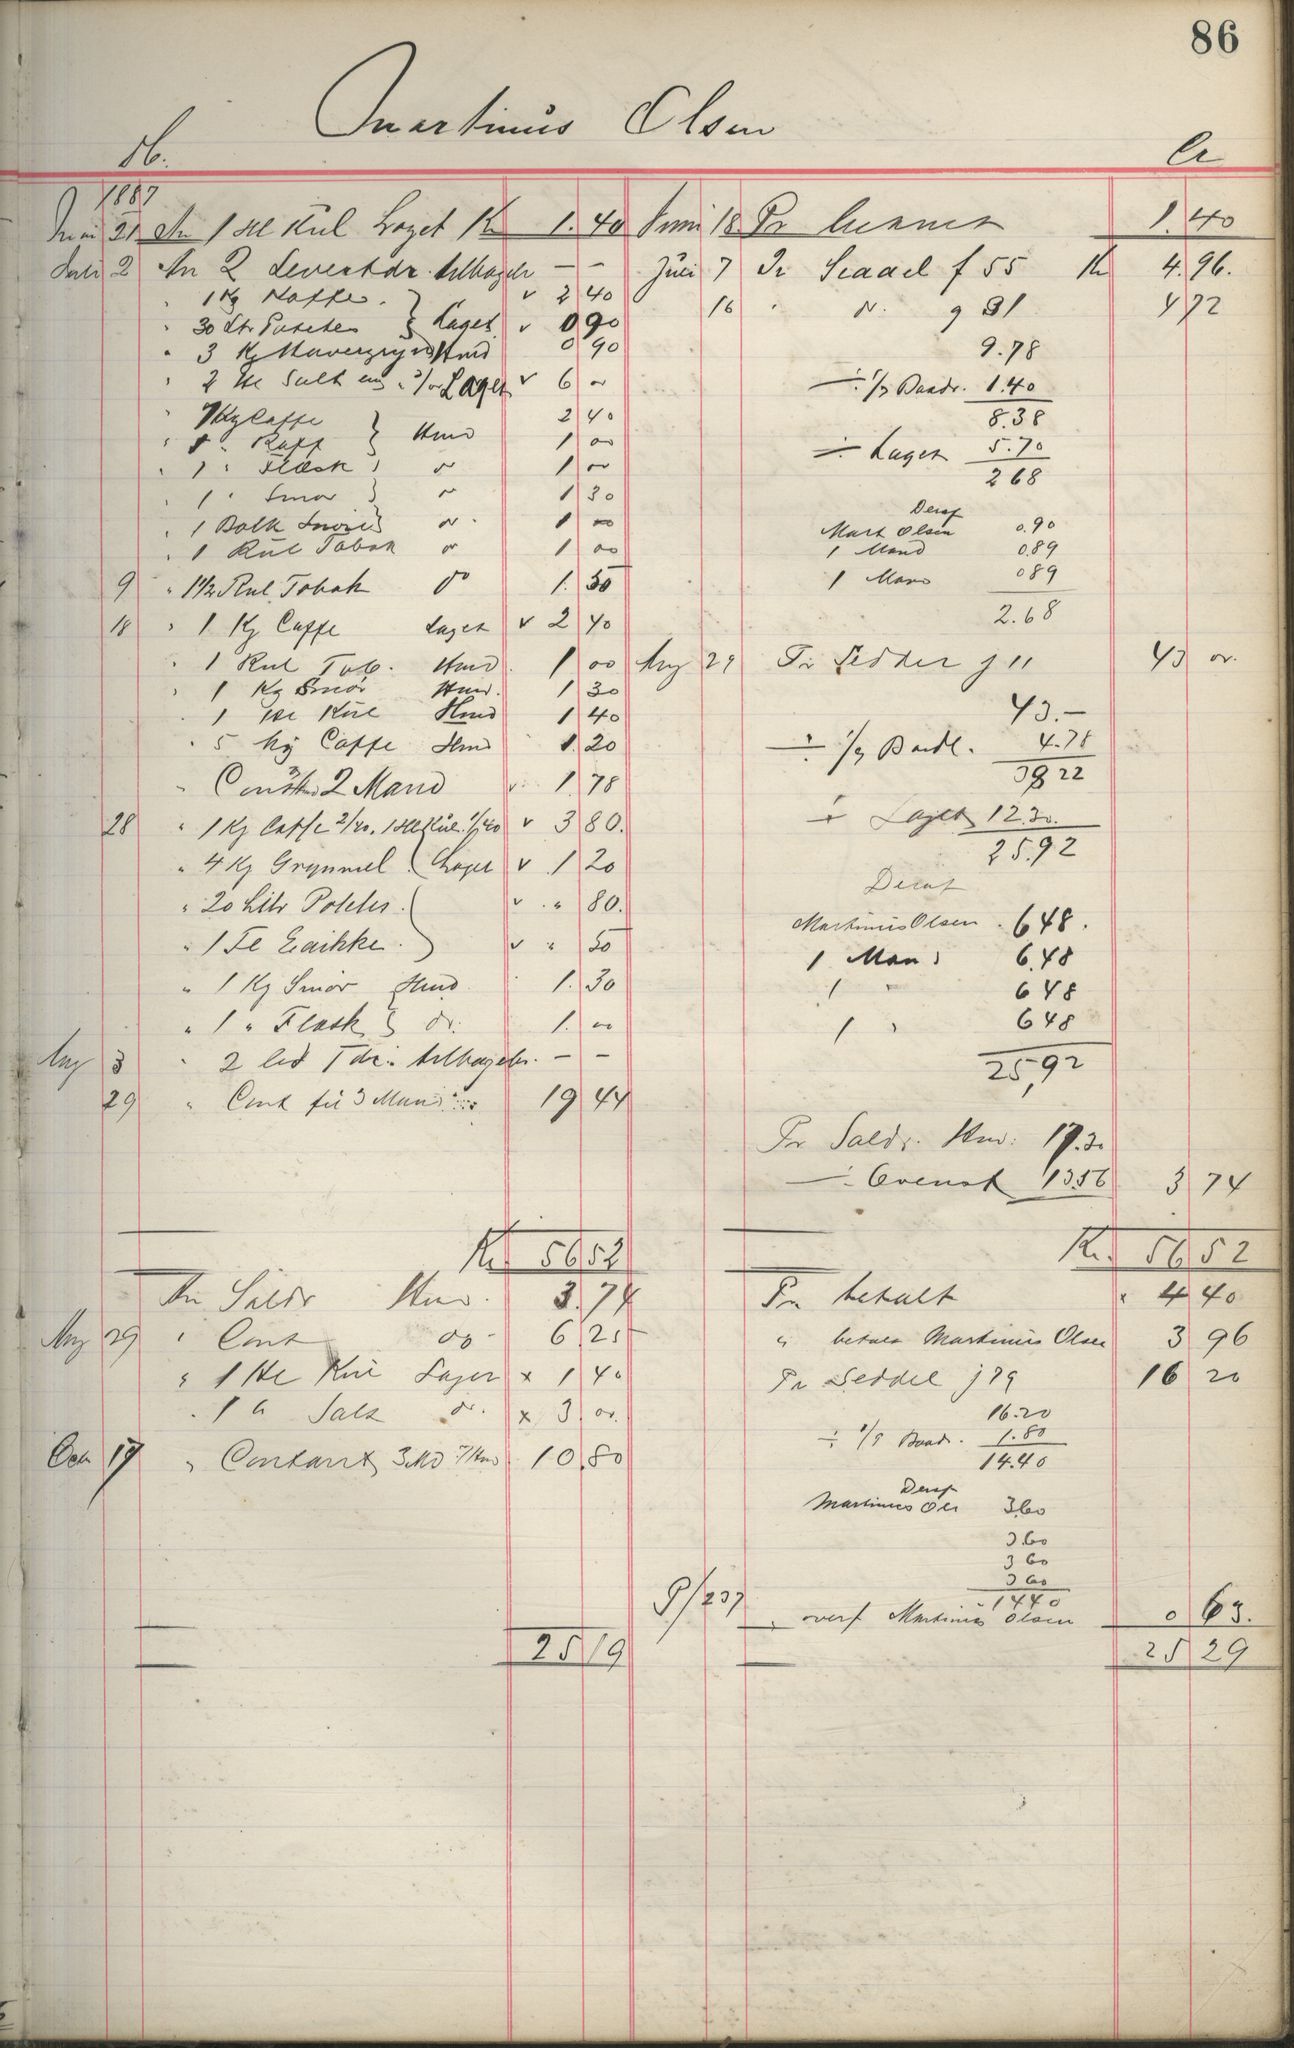 86
Martinus Olsen
Db.
Cr
1887
Mai 21 An 1 Hl Kul Laget Kr 1.40
Juli 2 An 2 Levertdr. tilbagelev — —
" 1 Kg Kaffe. v 2 40
" 30 Ltr Poteter Laget v 0 90
" 3 Kg Havregryn Hmd 0 90
" 2 Hl Salt Laget v 6 "
" 1 Kg Caffe 2 40
" 1 " Kaff Hmd 1 00
" 1 " Flæsk do 1 00
" 1 " Smør do 1 30
" 1 Bolk do 1 00
" 1 Rul Tobak do 1 00
9 " 1 1/2 Rul Tobak do 1. 50
18 " 1 Kg Caffe Laget v 2 40
" 1 Rul Tob. Hmd. 1 00
" 1 Kg Smør Hmd. 1 30
" 1 Hl Kul Hmd 1 40
" 5 hg Caffe Hmd 1. 20
" Cont 2 Mand v 1. 78
28 " 1 Kg Caffe 2/40. 1 Hl Kul. 1/40 v 3 80.
" 4 Kg Grynmel Laget v 1 20
" 20 Litr Poteter. v " 80.
" 1 Fl Edikke. v " 50
" 1 Kg Smør Hmd 1. 30
" 1 " Flæsk do. 1. 00
Aug 3 " 2 led Tdr. tilbagelev. — —
29 " Cont til 3 Mand 19 44
Kr 56 52
An Saldo Hmd. 3. 74
Aug 29 " Cont do 6 25
" 1 Hl Kul Lager x 1 40
" 1 " Salt do. x 3. 00.
Octr 17 " Contant 3 Md Hmd 10. 80
25 19
Juni 18 Pr 1. 40
Juli 7 Pr Seddel f 55 Kr 4. 96.
16 " do. g 31 4 72
9.78
÷ 1/7 Baadr. 1.40
8.38
÷ Laget 5.70
2 68
Deraf
Mart Olsen 0.90
1 Mand 0.89
1 Mand 0 89
2.68
Aug 29 Pr Seddel j 11 43 00.
43.—
÷ 1/9 Baadl. 4.78
38 22
÷ Laget 12.30.
25.92
Deraf
Martinus Olsen. 6 48.
1 Mand 6.48
1 " 6 48
1 " 6 48
25,92
Pr Saldo. Hmd: 17.30
÷ Ovenst 13.56 3 74
Kr. 56 52
Pr betalt 4 40
" betalt Martinus Olsen 3 96
Pr Seddel j 79 16 20
16.20
÷ 1/9 Baadr. 1.80
14.40
Deraf
Martinus Ols 3.60
3.60
3 60
3 60
14 40
P/237 " overf Martinus Olsen 0 63.
25 29